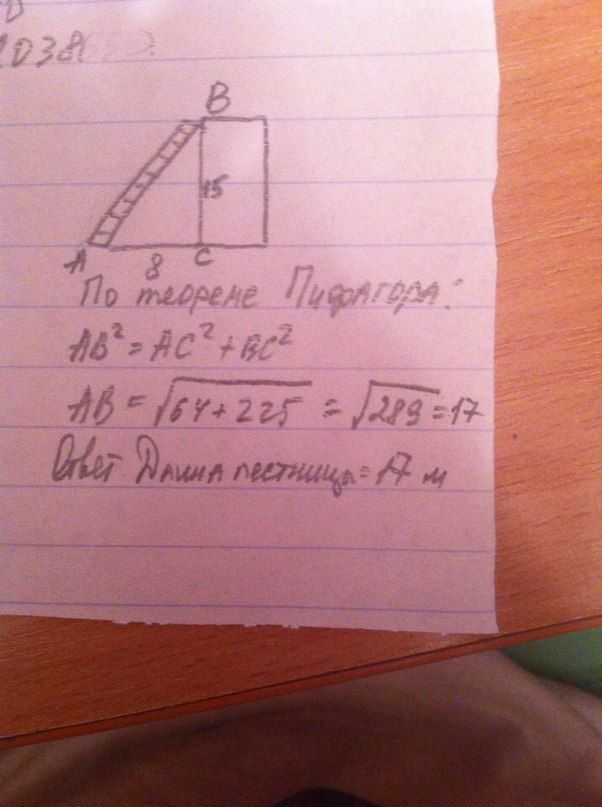 В
15
А
8
С
По теореме Пифагора:
AB² = AC² + BC²
AB = √64+225 = √289 = 17
Ответ Длина лестницы = 17 м